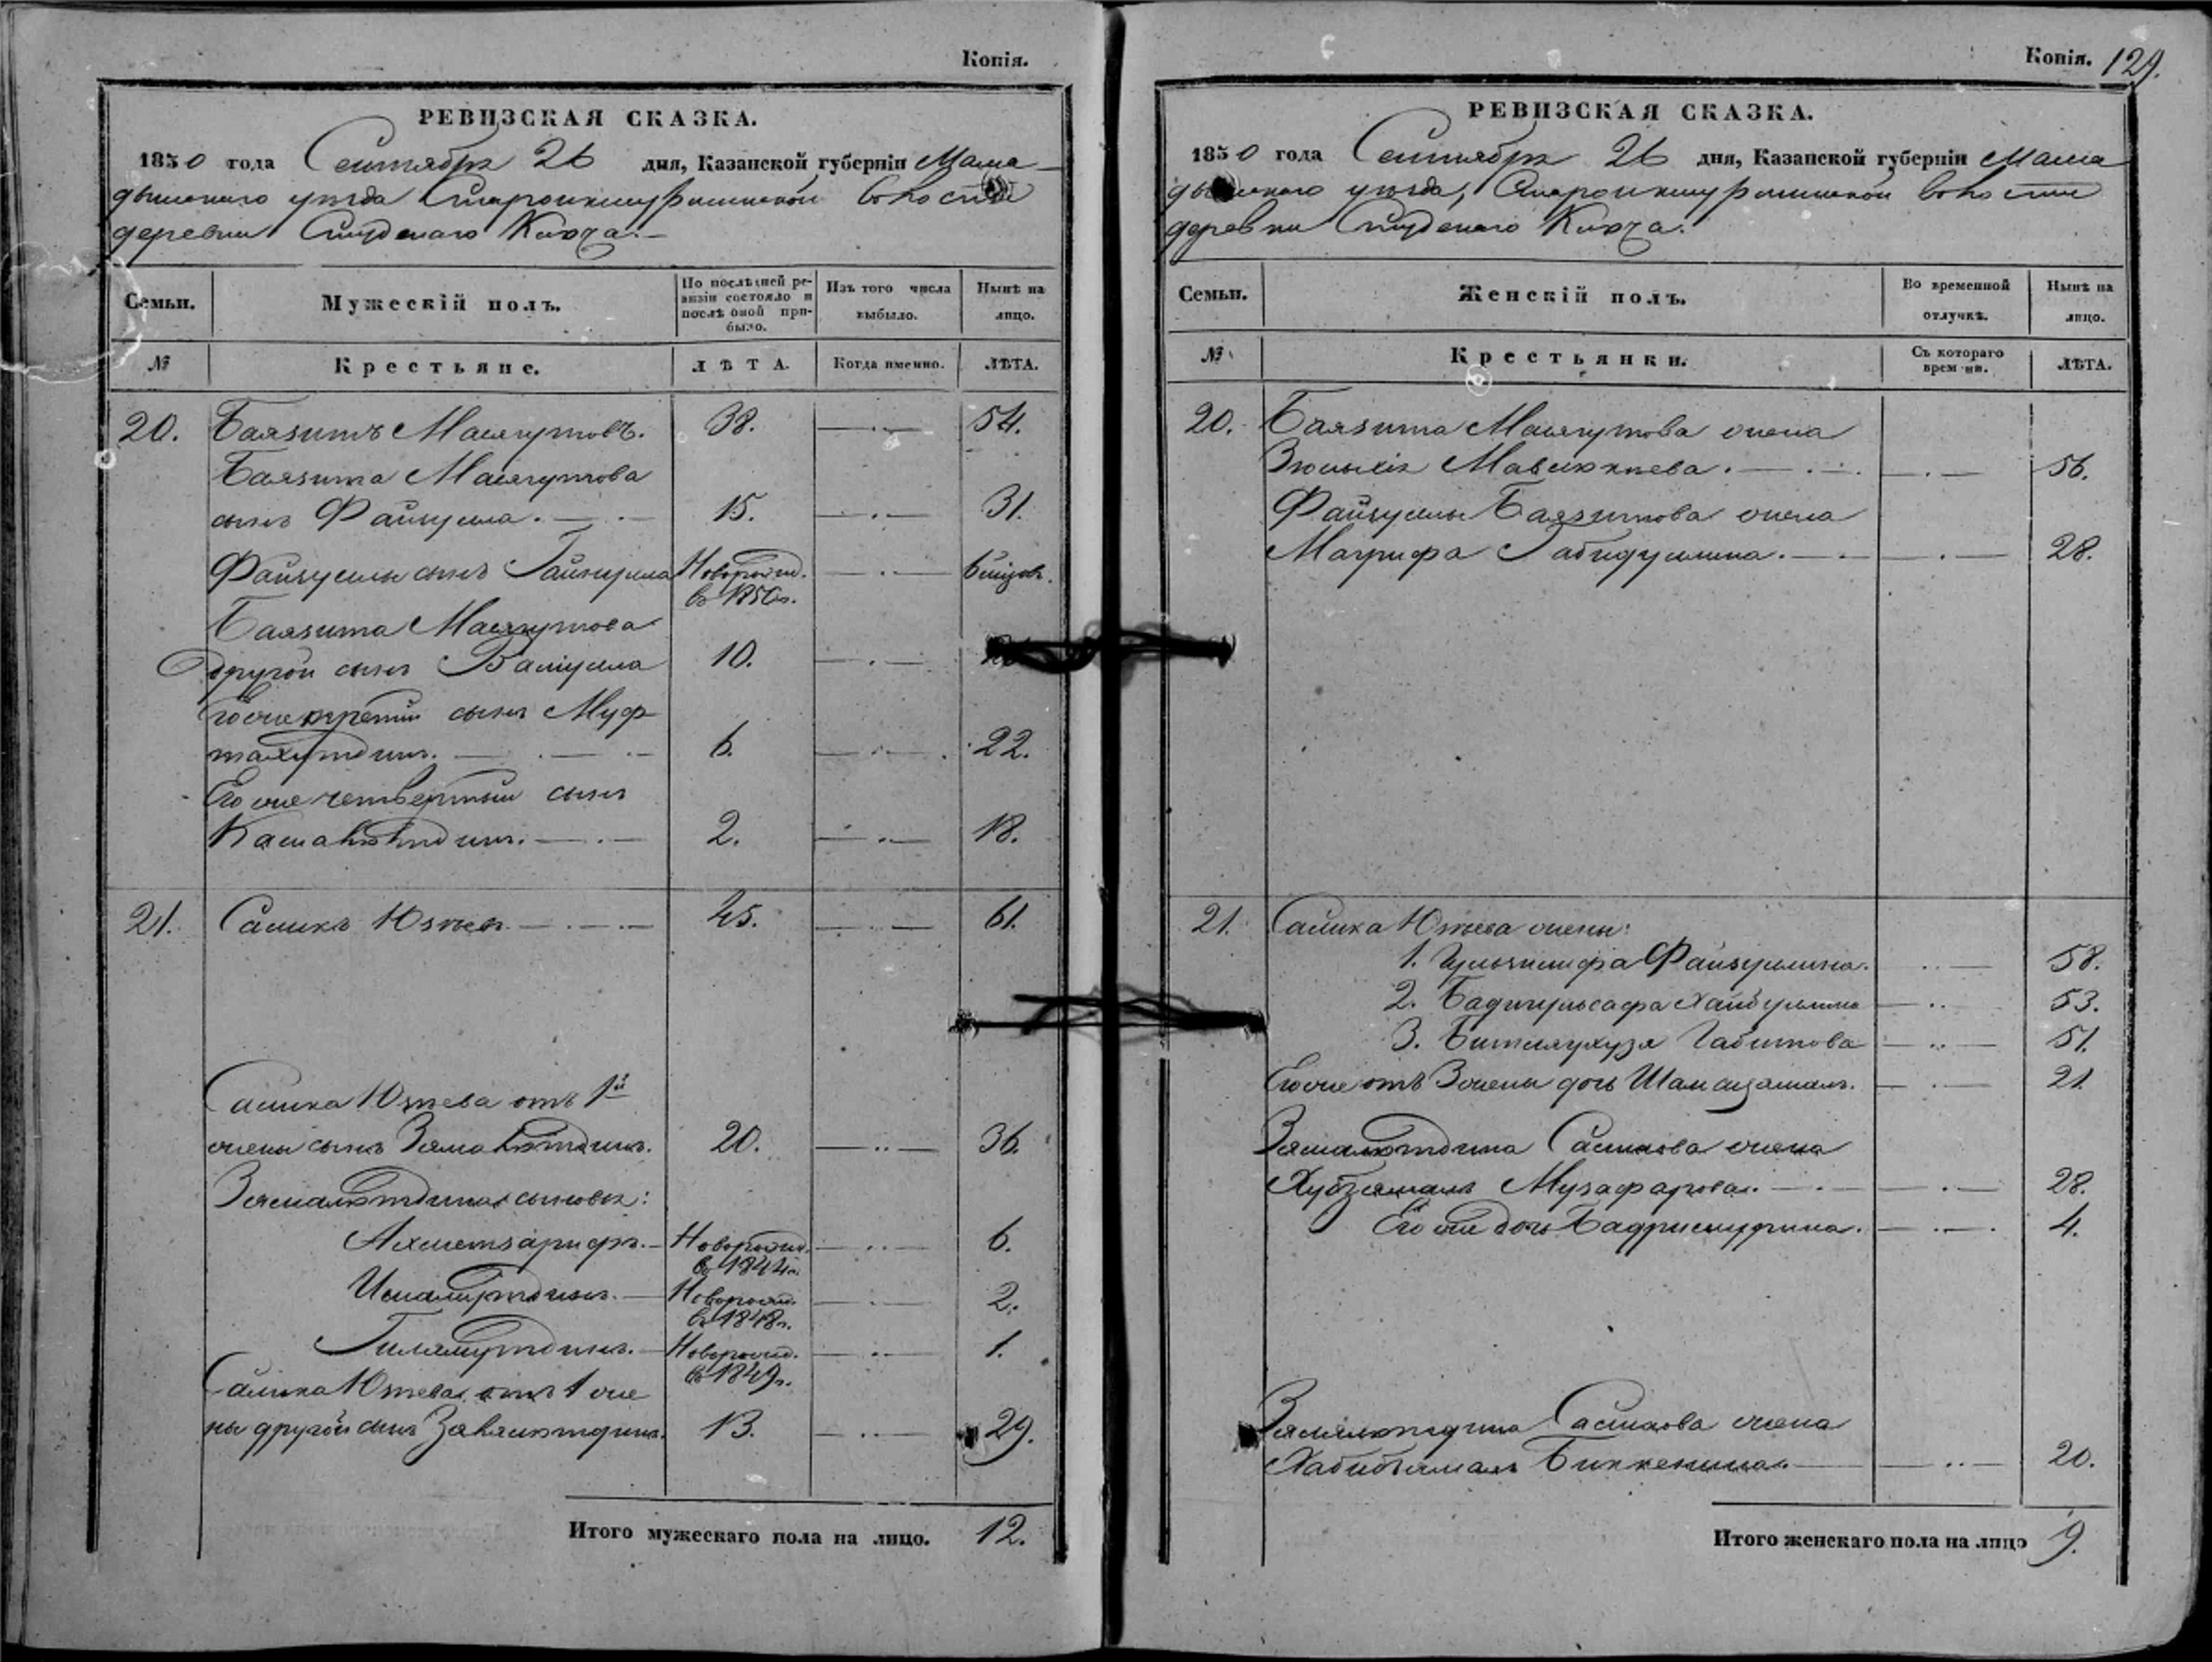 Копія.
РЕВИЗСКАЯ СКАЗКА.
1850 года Сентября 26 дня, Казанской губерніи Мама-
дышскаго уѣзда Староикшурминской волости
деревни Студенаго Ключа.
Семьи.
Мужескій полъ.
По послѣдней ре-
визіи состояло и
послѣ оной при-
было.
Изъ того числа
выбыло.
Нынѣ на
лицо.
№
Крестьяне.
ЛѢТА.
Когда именно.
ЛѢТА.
20. Баязитъ Масягутовъ. 38. 54.
Баязита Масягутова
сынъ Файзулла. 15. 31.
Файзуллы сынъ Гайнулла Новорожд. 6 мѣсяц.
въ 1850 г.
Баязита Масягутова
другой сынъ Валіулла 10.
Его же третій сынъ Муф-
тахутдинъ. 6. 22.
Его же четвертый сынъ
Камалютдинъ. 2. 18.
21. Саликъ Юзеевъ 45. 61.
Салика Юзеева отъ 1й
жены сынъ Зямалютдинъ. 20. 36.
Зямалютдина сыновья:
Ахметзарифъ. Новорожд. 6.
въ 1844 г.
Исмагутдинъ. Новорожд. 2.
въ 1848 г.
Гилямутдинъ. Новорожд. 1.
въ 1849 г.
Салика Юзеева отъ 1 же-
ны другой сынъ Зялялютдинъ. 13. 29.
Итого мужескаго пола на лицо. 12.
Копія. 129.
РЕВИЗСКАЯ СКАЗКА.
1850 года Сентября 26 дня, Казанской губерніи Мама
дышскаго уѣзда, Староикшурминской волости
деревни Студенаго Ключа.
Семьи.
Женскій полъ.
Во временной
отлучкѣ.
Нынѣ на
лицо.
№
Крестьянки.
Съ котораго
времени.
ЛѢТА.
20. Баязита Масягутова жена
Зюмылія Мавлюкеева. 56.
Файзуллы Баязитова жена
Магрифа Габидуллина. 28.
21. Салика Юзеева жены:
1. Гульзилифа Файзуллина. 58.
2. Бадигульсафа Хайбуллина 53.
3. Битлягузя Габитова 51.
Его же отъ 3 жены дочь Шамсизамалъ. 21.
Зямалютдина Саликова жена
Хубзямалъ Музафарова. 28.
Его же дочь Бадрисмурина. 4.
Зялялютдина Саликова жена
Хабибзямалъ Биккенина. 20.
Итого женскаго пола на лицо 9.